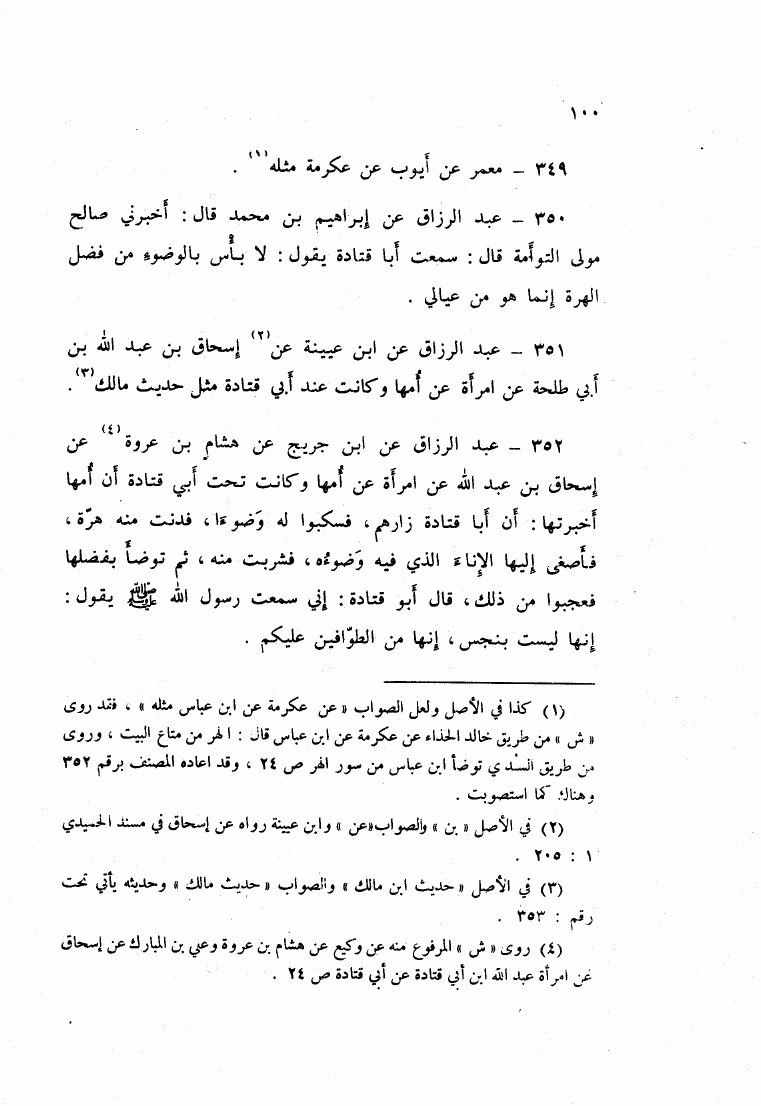 ١٠٠
٣٤٩ - معمر عن أيوب عن عكرمة مثله(١) .
٣٥٠ - عبد الرزاق عن إبراهيم بن محمد قال : أخبرني صالح
مولى التوأمة قال : سمعت أبا قتادة يقول : لا بأس بالوضوء من فضل
الهرة إنما هو من عيالي .
٣٥١ - عبد الرزاق عن ابن عيينة عن(٢) إسحاق بن عبد الله بن
أبي طلحة عن امرأة عن أمها وكانت عند أبي قتادة مثل حديث مالك(٣) .
٣٥٢ - عبد الرزاق عن ابن جريج عن هشام بن عروة(٤) عن
إسحاق بن عبد الله عن امرأة عن أمها وكانت تحت أبي قتادة أن أمها
أخبرتها : أن أبا قتادة زارهم ، فسكبوا له وَضوءًا ، فدنت منه هرّة ،
فأصغى إليها الإناء الذي فيه وَضوءُه ، فشربت منه ، ثم توضأ بفضلها
فعجبوا من ذلك ، قال أبو قتادة : إني سمعت رسول الله ﷺ يقول :
إنها ليست بنجس ، إنها من الطوّافين عليكم .
(١) كذا في الأصل ولعل الصواب « عن عكرمة عن ابن عباس مثله » ، فقد روى
« ش » من طريق خالد الحذاء عن عكرمة عن ابن عباس قال : الهر من متاع البيت ، وروى
من طريق السدي توضأ ابن عباس من سور الهر ص ٢٤ ، وقد اعاده المصنف برقم ٣٥٢
وهناك كما استصوبت .
(٢) في الأصل « بن » والصواب «عن » وابن عيينة رواه عن إسحاق في مسند الحميدي
١ : ٢٠٥ .
(٣) في الأصل « حديث ابن مالك » والصواب « حديث مالك » وحديثه يأتي تحت
رقم : ٣٥٣ .
(٤) روى « ش » المرفوع منه عن وكيع عن هشام بن عروة وعي بن المبارك عن إسحاق
عن امرأة عبد الله ابن أبي قتادة عن أبي قتادة ص ٢٤ .